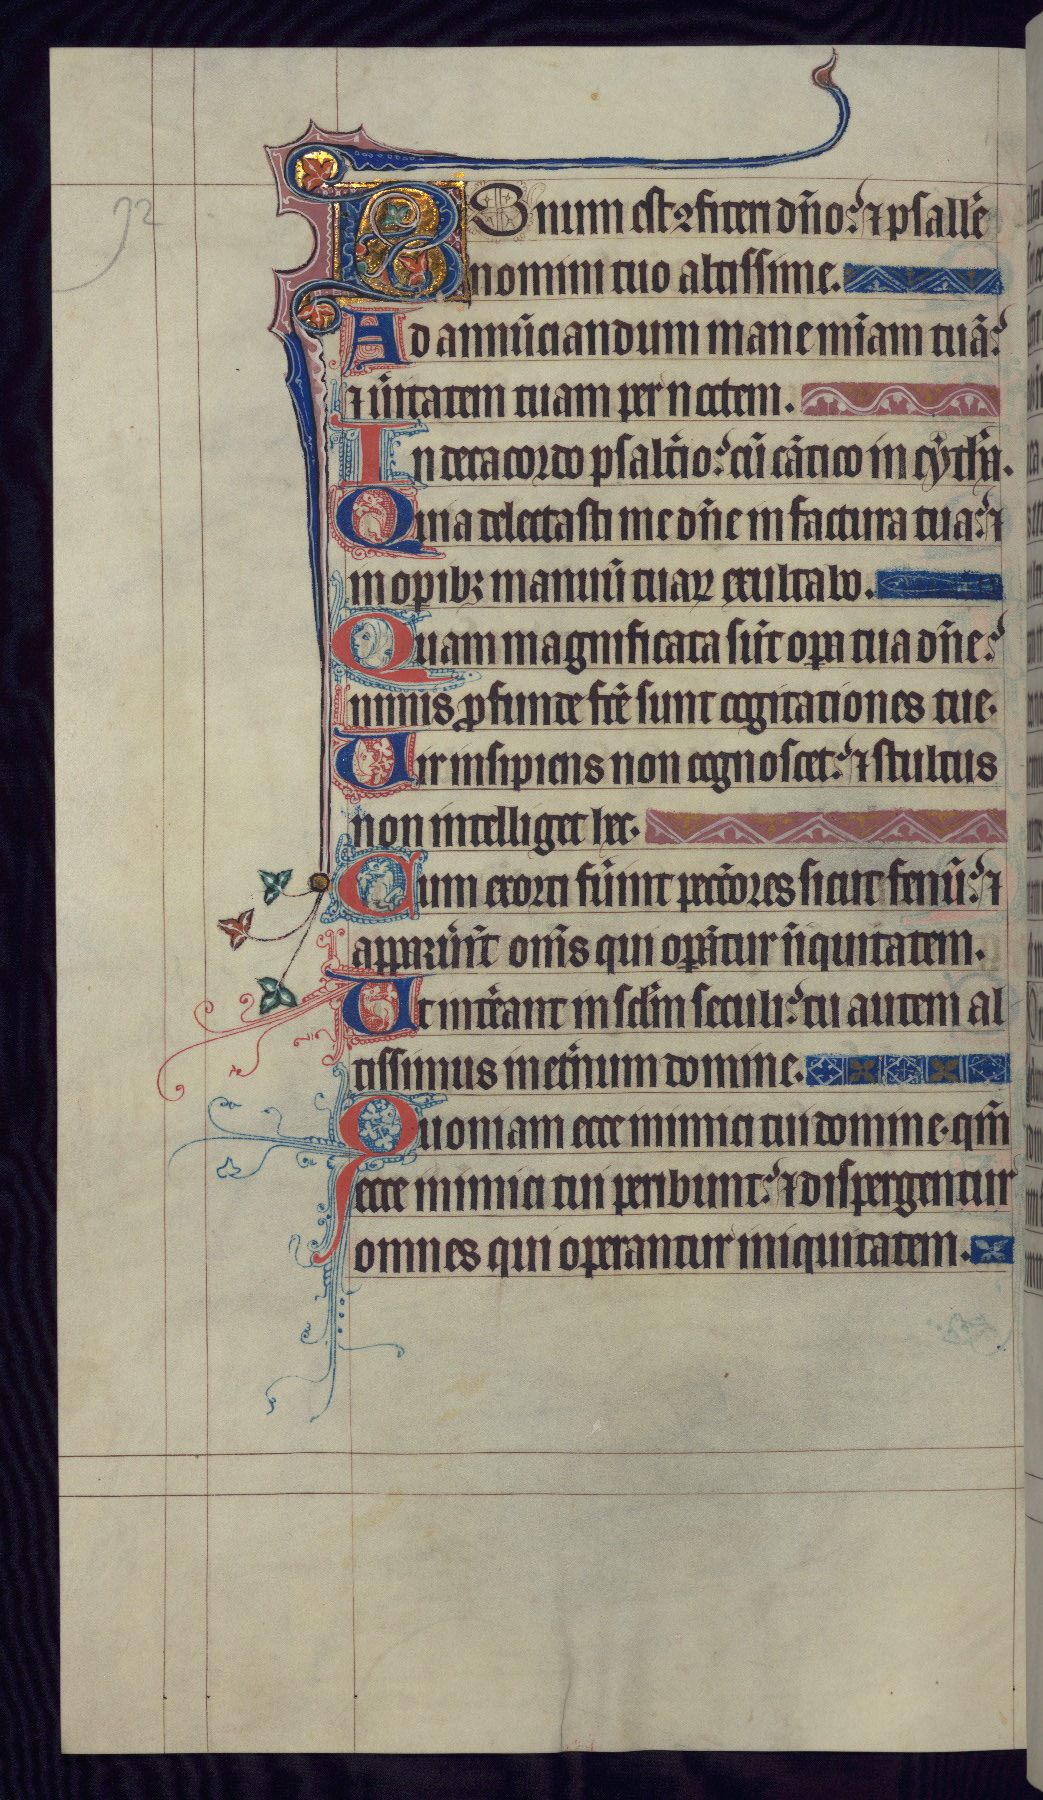 92
BOnum est ꝯfiteri dño: ⁊ psallẽ
nomini tuo altissime.
Ad annũciandum mane mĩam tuã:
⁊ ũitatem tuam per noctem.
In decacordo psaltio: cũ cãtico in cythã.
Quia delectasti me dñe in factura tua: ⁊
in opibꝫ manuũ tuaꝝ exultabo.
Quam magnificata sũt oꝑa tua dñe:
nimis ꝓfunde fcẽ sunt cogitationes tue.
Uir insipiens non cognoscet: ⁊ stultus
non intelliget hec.
Cum exorti fũint peccõres sicut fenũ: ⁊
apparũnt om̃s qui oꝑãtur ĩiquitatem.
Ut intẽant in sclm̃ seculi: tu autem al
tissimus in etñum domine.
Quoniam ecce inimici tui domine. qm̃
ecce inimici tui peribunt: ⁊ dispergentur
omnes qui operantur iniquitatem.